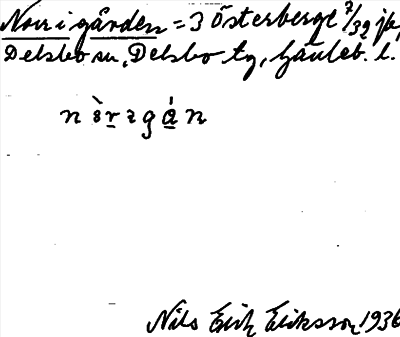 Norrigården = 3 Österberge 7/32 je,
Delsbo sn, Delsbo tg, Gävleb. l.
Nils Erik Eriksson 1936